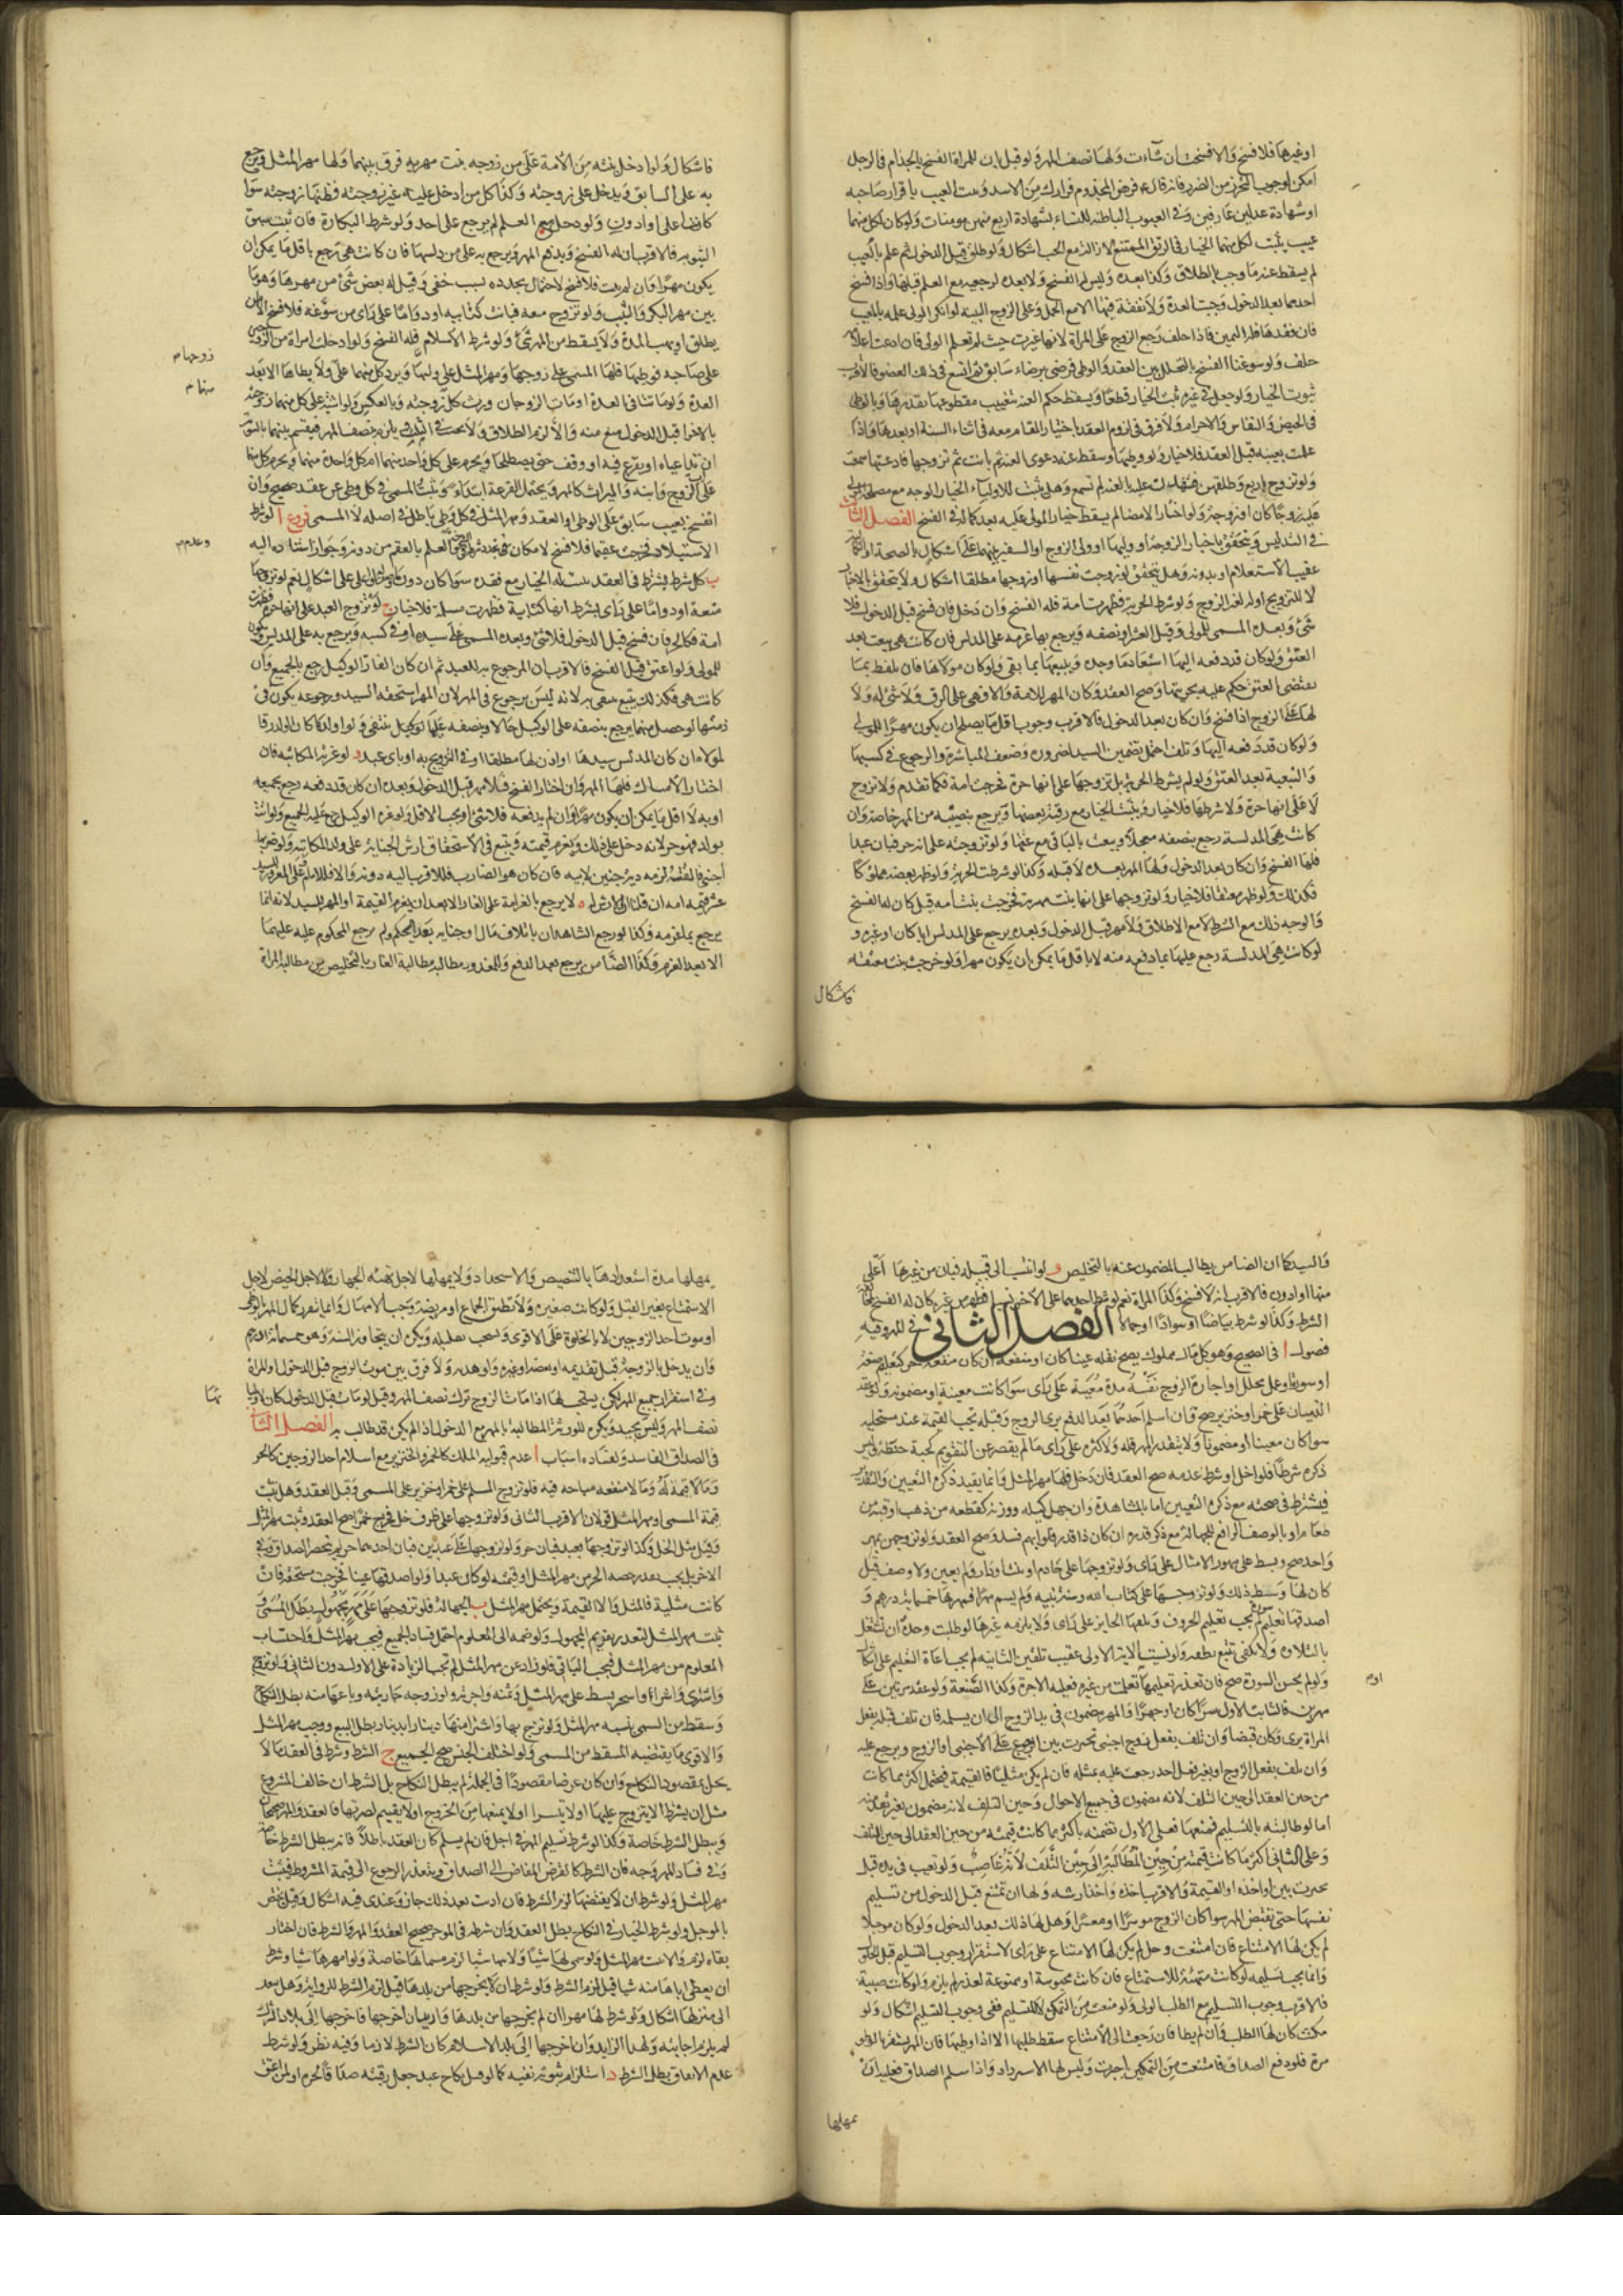 او غيرها فلا فسخ والا فسخت ان شاءت ولها نصف المهر ولو قيل بان للمراة الفسخ بالجذام في الرجل
امكن لوجوب التحرز من الضرر فانه قال فر من المجذوم فرارك من الاسد ويثبت العيب باقرار صاحبه
او شهادة عدلين عارفين وفي العيوب الباطنة للنساء بشهادة اربع منهن مومنات ولو كان لكل منهما
عيب يثبت لكل منهما الخيار وفي الرتق الممتنع الازالة مع الجب اشكال ولو طلق قبل الدخول ثم علم بالعيب
لم يسقط عنه ما وجب بالطلاق وكذا بعده وليس له الفسخ ولا بعده لو رجعيه مع العلم قبلها واذا فسخ
احدهما بعد الدخول وجبت العدة ولا نفقة فيها الا مع الحمل وعلى الزوج البينة لو انكر الولي علمه بالعيب
فان فقدها فله اليمين فاذا حلف رجع الزوج على المراة لانها غرت حيث لم تعلم الولي فان ادعت اعلامه
حلف ولو سوغنا الفسخ بالتخلل بين العقد والوطي فرضي برضاء سابق ثم اتسع في ذلك العضو فالاقرب
ثبوت الخيار ولو حصل في غيره ثبت الخيار قطعا ويسقط حكم العنة بتغييب مقطوعها بقدرها وبالوطي
في الحيض والنفاس والاحرام ولا فرق في لزوم العقد باختيار المقام معه في اثناء السنة او بعدها واذا
علمت بعيبه قبل العقد فلا خيار ولو وطيها وسقط عنه دعوى العنة ثم بانت ثم تزوجها فادعتها سمعت
ولو تزوج باربع وطلقهن فشهدت عليه بالعنة لم تسمع وهل يثبت للاولياء الخيار الوجه مع مصلحة المولى
عليه زوجا كان او زوجة ولو اختار الامضا لم يسقط خيار المولى عليه بعد كماله في الفسخ الفصل الثالث
في التدليس ويتحقق باخبار الزوجة او وليها او ولي الزوج او السفير بينهما على اشكال بالصحة او الكمال
عقيب الاستعلام او بدونه وهل يتحقق لو زوجت نفسها او زوجها مطلقا اشكال ولا يتحقق بالاخبار
لا للتزويج او له لغير الزوج ولو شرط الحرية فظهرت امة فله الفسخ وان دخل فان فسخ قبل الدخول فلا
شئ وبعده المسمى للمولى وقيل العشر او نصفه ويرجع بما غرمه على المدلس فان كانت هي تبعت بعد
العتق ولو كان قد دفعه اليها استعاد ما وجد ويتبعها بما بقى ولو كان مولاها فان تلفظ بما
يقتضى العتق حكم عليه بحريتها وصح العقد وكان المهر للامة والا فهي على الرق ولا شئ له ولا
لها على الزوج اذا فسخ وان كان بعد الدخول فالاقرب وجوب اقل ما يصلح ان يكون مهرا للمولى
ولو كان قد دفعه اليها وتلف احتمل تضمين السيد لغروره وضعف المباشرة والرجوع في كسبها
والتبعية بعد العتق ولو لم يشترط الحرية بل تزوجها على انها حرة فخرجت امة فكما تقدم ولا تزوج
لا على انها حرة ولا شرطها فلا خيار ويثبت الخيار مع رقية بعضها ويرجع بنصيبه من المهر خاصة وان
كانت هي المدلسة رجع بنصفه معجلا وتبعت بالباقي مع عتقها ولو تزوجته على انه حر فبان عبدا
فلها الفسخ وان كان بعد الدخول ولها المهر بعده لا قبله وكذا لو شرطت الحرية ولو ظهر بعضه مملوكا
فكذلك ولو ظهر معتقا فلا خيار ولو تزوجها على انها بنت مهيرة فخرجت بنت امه قيل كان له الفسخ
والوجه ذلك مع الشرط لا مع الاطلاق ولا مهر قبل الدخول وبعده يرجع على المدلس ابا كان او غيره و
لو كانت هي المدلسة رجع عليها بما دفعه منه لا باقل ما يمكن ان يكون مهرا ولو خرجت بنت معتقه
فاشكال
فاشكال ولو ادخل بنته من الامة على من زوجه بنت مهيرة فرق بينهما ولها مهر المثل ويرجع
به على السابق ويدخل على زوجته وكذا كل من ادخل عليه غير زوجته فظنها زوجته سوا
كان اعلى او ادون ولو دخل مع العلم لم يرجع على احد ولو شرط البكارة فان ثبت سبق
الثيوبة فالاقرب ان له الفسخ ويدفع المهر ويرجع به على من دلسها فان كانت هي رجع باقل ما يمكن ان
يكون مهرا وان لم يثبت فلا فسخ لاحتمال تجدده بسبب خفي وقيل له بعض شئ من مهرها وهو ما
بين مهر البكر والثيب ولو تزوج متعه فبانت كتابيه او دواما على راى من سوغه فلا فسخ الا ان
يطلق او يهب المدة ولا يسقط من المهر شئ ولو شرط الاسلام فله الفسخ ولو ادخلت امراة كل من الزوجين
على صاحبه فوطيها فلها المسمى على زوجها ومهر المثل على واطيها ويرد كل منهما على ولا يطاها الا بعد
زوجها م
منها م
العدة ولو ماتتا في العدة او مات الزوجان ورث كل زوجته وبالعكس ولو اشتبه على كل منهما زوجته
بالاخرى قبل الدخول منع منه والا لزم الطلاق ولا تحسب في الثلث ويلزم بنصف المهر فيقسم بينهما بالسوية
ان تداعياه او يقرع فيه او وقف حتى يصطلحا ويحرم على كل واحد منهما ام كل واحدة منهما ويحرم كل منهما
على اب الزوج وابنه والميراث كالمهر ويحتمل القرعة ابتداء ويثبت المسمى في كل وطى عن عقد صحيح وان
انفسخ بعيب سابق على الوطى او العقد ومهر المثل في كل وطى باطل في اصله لا المسمى فروع ا لو شرط
الاستيلاد فخرجت عقيما فلا فسخ لامكان تجدد شرطه العلم بالعقم من دونه وجواز استناده اليه
وعدم م
ب كل شرط يشترط في العقد يثبت له الخيار مع فقده سوا كان دون على اشكال نعم لو تزوجها
متعة او دواما على راى بشرط انها كتابية فظهرت مسلمة فلا خيار ج لو تزوج العبد على انها حرة فظهرت
امة فكالحر فان فسخ قبل الدخول فلا شئ وبعده المسمى على سيده او في كسبه ويرجع به على المدلس ويكون
للمولى ولو اعتق قبل الفسخ فالاقرب ان المرجوع به للعبد ثم ان كان الغار الوكيل رجع بالجميع وان
كانت هي فكذلك يتبع به لانه ليس برجوع في المهر لان المهر استحقه السيد ورجوعه يكون في
ذمتها لو حصل منهما يرجع بنصفه على الوكيل حالا وبنصفه عليها او كل ولو اولد كان الولد رقا
لمولاه ان كان المدلس سيدها او اذن لها مطلقا او في التزويج به او باي عبد د لو غرته المكاتبه فان
اختار الامساك فلها المهر وان اختار الفسخ فلا مهر قبل الدخول وبعده ان كان قد دفعه رجع بجميعه
او به الا اقل ما يمكن ان يكون مهرا وان لم يدفعه فلا شئ او يجب الاقل ولو غره الوكيل رجع عليه بالجميع ولو اتت
بولد فهو حر لانه دخل على ذلك ويغرم قيمته ويتبع في الاستحقاق ارش الجناية على ولد المكاتبه ولو ضربها
اجنبي فالقته لزمه دية جنين لابيه فان كان هو الضارب فللاقرب اليه دونه والا فللامام وعلى المغرور للسيد
عشر قيمة امه ان قلنا ان الارش له ه لا يرجع بالغرامة على الغار الا بعد ان يغرم القيمة او المهر للسيد لانه انما
يرجع بما غرمه وكذا لو رجع الشاهدان باتلاف مال او جناية بعد الحكم ولم يرجع المحكوم عليه عليهما
الا بعد الغرم وكذا الضامن يرجع بعد الدفع وللمغرور مطالبة الغار بالتخليص من مطالبة المراة
والسيد كما ان الضامن يطالب المضمون عنه بالتخليص و لو انتسب الى قبيلة فبان من غيرها اعلى
منها او ادون فالاقرب انه لا فسخ وكذا المراة نعم لو شرط احدهما على الاخر نسبا فظهر من غيره كان له الفسخ لمخالفة
الشرط وكذا لو شرط بياضا او سوادا او جمالا الفصل الثاني في المهر وفيه
فصول ا في الصحيح وهو كل مال مملوك يصح نقله عينا كان او منفعة ان كان منفعة حر كتعليم صنعة
او سورة او عمل محلل او اجارة الزوج نفسه مدة معينة على راى سوا كانت معينة او مضمونة ولو عقد
الذميان على خمر او خنزير صح فان اسلم احدهما بعد الدفع برى الزوج وقبله تجب القيمة عند مستحليه
سوا كان معينا او مضمونا ولا يتقدر المهر قلة ولا كثرة على راى ما لم يقصر عن التقويم كحبة حنطة وليس
ذكره شرطا فلو اخل او شرط عدمه صح العقد فان دخل فلها مهر المثل وانما يفيد ذكره التعيين والتقدير
فيشترط في صحته مع ذكره التعيين اما بالمشاهدة وان جهل كيله ووزنه كقطعه من ذهب او قبة من
طعام او بالوصف الرافع للجهالة مع ذكر قدره ان كان ذا قدر فلو ابهم فسد وصح العقد ولو تزوجهن بمهر
واحد صح وبسط على مهور الامثال على راى ولو تزوجها على خادم او بيت او دار ولم يعين ولا وصف قيل
كان لها وسط ذلك ولو تزوجها على كتاب الله وسنة نبيه ولم يسم مهرا فمهرها خمسمائة درهم و
اصدقها تعليم سورة لم يجب تعليم الحروف ويلقنها الجايز على راى ولا يلزمه غيرها لو طلبت وحده ان تستقل
بالتلاوة ولا يكفى تتبع نطقه ولو نسيت الاية الاولى عقيب تلقين الثانية لم يجب اعادة التعليم على اشكال
ولو لم يحسن السورة صح فان تعذر تعليمها او تعلمت من غيره فعليه الاجرة وكذا الصنعة ولو عقد مرتين على
او م
مهرين فالثابت الاول سرا كان او جهرا والمهر مضمون في يد الزوج الى ان يسلمه فان تلف قبله بفعل
المراة برى وكان قبضا وان تلف بفعل اجنبي تخيرت بين الرجوع على الاجنبي او الزوج ويرجع عليه
وان تلف بفعل الزوج او بغير فعل احد رجعت عليه بمثله فان لم يكن مثليا فالقيمة فيحتمل اكثر ما كانت
من حين العقد الى حين التلف لانه مضمون في جميع الاحوال وحين التلف لانه مضمون بغير
اما لو طالبته بالتسليم فمنعها فعلى الاول تضمنه باكثر ما كانت قيمته من حين العقد الى حين التلف
وعلى الثاني اكثر ما كانت قيمته من حين المطالبة الى حين التلف لانه غاصب ولو تعيب في يده قيل
تخيرت بين اخذه او القيمة والاقرب اخذه واخذ ارشه ولها ان تمتنع قبل الدخول من تسليم
نفسها حتى تقبض المهر سوا كان الزوج موسرا او معسرا وهل لها ذلك بعد الدخول ولو كان موجلا
لم يكن لها الامتناع فان امتنعت وحل لم يكن لها الامتناع على راى لاستقرار وجوب التسليم قبل الحلول
وانما يجب تسليمه لو كانت متهيئة للاستمتاع فان كانت محبوسة او ممنوعة لعذر لم يلزم ولو كانت صبية
فالاقرب وجوب التسليم مع الطلب الولى ولو منعت من التمكين لا للتسليم ففي وجوب التسليم اشكال ولو
مكنت كان لها الطلب وان لم يطا فان رجعت الى الامتناع سقط طلبها الا اذا وطيها فان المهر يستقر بالوطى
مرة فلو دفع الصداق فامتنعت من التمكين اجبرت وليس لها الاسترداد واذا سلم الصداق فعليه ان
يمهلها
يمهلها مدة استعدادها بالتنصيص والاستحداد ولا يمهلها لاجل تهيئة الجهاز ولا لاجل الحيض لاجل
الاستمتاع بغير القبل ولو كانت صغيرة ولا تطيق الجماع او مريضة وجب الامهال وانما يتقرر كمال المهر بالوطى
او موت احد الزوجين لا بالخلوة على الاقوى ويستحب تقليله ويكره ان يتجاوز السنة وهو خمسمائة درهم
وان يدخل بالزوجة قبل تقديمه او بعضه او غيره ولو هديه ولا فرق بين موت الزوج قبل الدخول او المراة
وفي استقرار جميع المهر لكن يستحب لها اذا مات الزوج ترك نصف المهر وقيل لو ماتت قبل الدخول كان لاوليائها
نصف المهر وليس بجيد ويكره للورثة المطالبة بالمهر مع الدخول اذا لم يكن قد طالب به الفصل الثانى
في الصداق الفاسد ولفساده اسباب ا عدم قبوليه الملك كالخمر والخنزير مع اسلام احد الزوجين كالحر
وما لا قيمة له وما لا منفعه مباحه فيه فلو تزوج المسلم على خمر او خنزير على المسمى وقيل العقد وهل يثبت
قيمة المسمى او مهر المثل قولان الاقرب الثاني ولو تزوجها على ظرف خل فخرج خمرا صح العقد ويثبت مهر المثل
وقيل مثل الخل وكذا لو تزوجها بعبد فبان حرا ولو تزوجها على عبدين فبان احدهما حرا لم ينحصر الصداق في
الاخر بل يجب بقدر حصه الحر من مهر المثل او قيمته لو كان عبدا ولو اصدقها عينا فخرجت مستحقة فان
كانت مثلية فالمثل والا القيمة ويحتمل مهر المثل ب الجهالة فلو تزوجها على مهر مجهول بطل المسمى و
ثبت مهر المثل لتعذر تقويم المجهول ولو ضمه الى المعلوم احتمل فساد الجميع فيجب مهر المثل واحتساب
المعلوم من مهر المثل فيجب الباقي فلو زاد عن مهر المثل لم تجب الزيادة على الاول دون الثاني ولو تزوج
واشترى واستاجر بسط على مهر المثل وثمنه واجرته ولو زوجه جاريته وباعها منه بطل النكاح
وسقط من المسمى نسبه مهر المثل ولو تزوج بها واشترا منها دينارا بدينار بطل البيع ووجب مهر المثل
والاقوى ما يقتضيه المسقط من المسمى ولو اختلف الجنس صح الجميع ج الشرط وشرط في العقد ما لا
يخل بمقصود النكاح وان كان عرضا مقصودا في الجملة لم يبطل النكاح بل الشرط ان خالف المشروع
مثل ان يشترط الا يتزوج عليها او لا يتسرا او لا يمنعها من الخروج او لا يقسم لضرتها فالعقد والمهر صحيحان
ويبطل الشرط خاصة وكذا لو شرط تسليم المهر في اجل فان لم يسلم كان العقد باطلا فانه يبطل الشرط خاصة
وفي فساد المهر وجه فان الشرط كالعوض المضاف الى الصداق ويتعذر الرجوع الى قيمة المشروط فيثبت
مهر المثل ولو شرط ان لا يفتضها لزم الشرط فان اذنت بعد ذلك جاز وعندى فيه اشكال وقيل يختص
بالموجل ولو شرط الخيار في النكاح بطل العقد وان شرطه في المهر صح العقد والمهر والشرط فان اختار
بقاءه لزم والا ثبت مهر المثل ولو سمى لها شيئا ولابيها شيئا لزم مسماها خاصة ولو امهرها شيئا وشرط
ان يعطى اباها منه شيئا قيل لزم الشرط ولو شرط ان لا يخرجها من بلدها قيل لزم الشرط للرواية وهل يتعدى
الى منزلها اشكال ولو شرط لها مهرا ان لم يخرجها من بلدها وازيد ان اخرجها فاخرجها الى بلاد الشرك
لم يلزم اجابته ولها الزايد وان اخرجها الى بلد الاسلام كان الشرط لازما وفيه نظر ولو شرط
عدم الانفاق بطل الشرط د استلزام ثبوته نفيه كما لو قبل نكاح عبد جعل رقبته صداقا لحرة او لمن اعتق